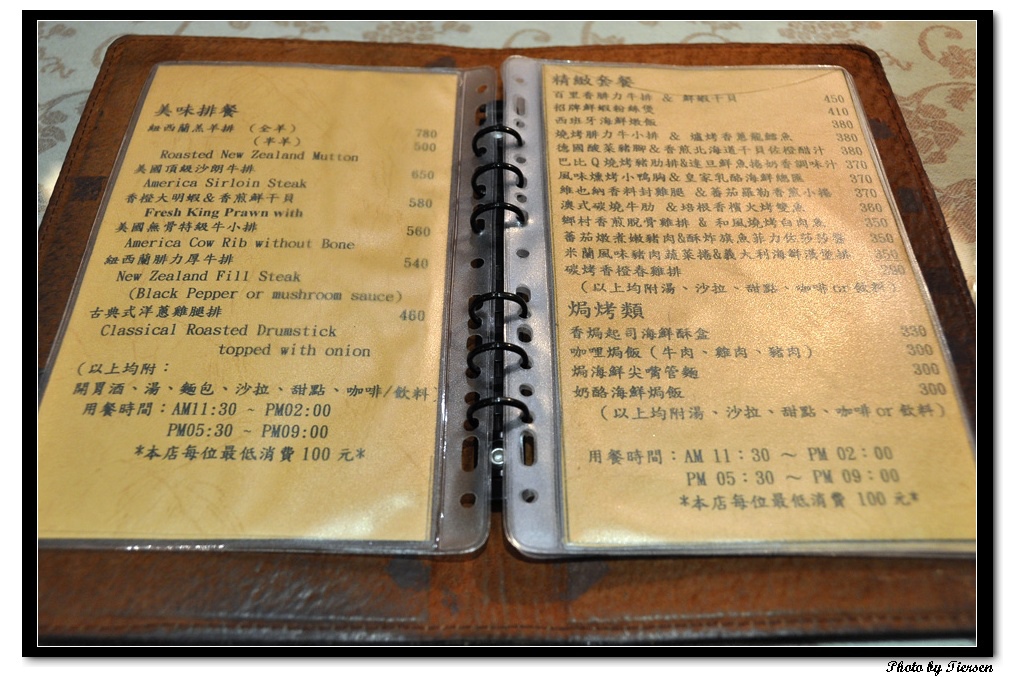 美味排餐
紐西蘭羔羊排 (全羊) 780
(半羊) 500
Roasted New Zealand Mutton
美國頂級沙朗牛排 650
America Sirloin Steak
香橙大明蝦&香煎鮮干貝 580
Fresh King Prawn with
美國無骨特級牛小排 560
America Cow Rib without Bone
紐西蘭腓力厚牛排 540
New Zealand Fill Steak
(Black Pepper or mushroom sauce)
古典式洋蔥雞腿排 460
Classical Roasted Drumstick
topped with onion
(以上均附:
開胃酒、湯、麵包、沙拉、甜點、咖啡/飲料
用餐時間:AM11:30 ~ PM02:00
PM05:30 ~ PM09:00
*本店每位最低消費100元*
精緻套餐
百里香腓力牛排 & 鮮蝦干貝 450
招牌鮮蝦粉絲煲 410
西班牙海鮮燉飯 380
燒烤腓力牛小排 & 爐烤香蔥龍鱈魚 380
德國酸菜豬腳&香煎北海道干貝佐橙醋汁 380
巴比Q燒烤豬肋排&達旦鮮魚捲奶香調味汁 370
風味燻烤小鴨胸&皇家乳酪海鮮總匯 370
維也納香料封雞腿 &蕃茄羅勒香煎小揚 370
澳式碳燒牛肋 &培根香檳火烤雙魚 360
鄉村香煎脫骨雞排 & 和風燒烤白肉魚 350
蕃茄燉煮嫩豬肉&酥炸旗魚菲力佐莎莎醬 350
米蘭風味豬肉蔬菜捲&義大利海鮮漢堡排 350
碳烤香橙春雞排 290
(以上均附湯、沙拉、甜點、咖啡or飲料)
焗烤類
香焗起司海鮮酥盒 330
咖哩焗飯(牛肉、雞肉、豬肉) 300
焗海鮮尖嘴管麵 300
奶酪海鮮焗飯 300
(以上均附湯、沙拉、甜點、咖啡or飲料)
用餐時間:AM 11:30 ~ PM 02:00
PM 05:30 ~ PM 09:00
*本店每位最低消費 100 元*
Photo by Tiersen